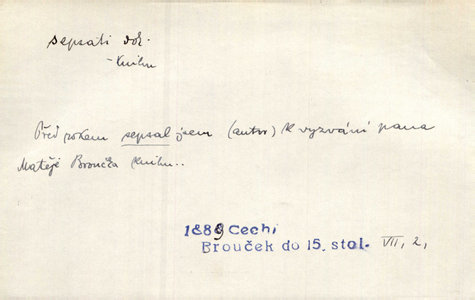 sepsati dok.
-knihu
Před rokem sepsal jsem (autor) k vyzvání pana
Matěje Broučka knihu..
1889 Cechi
Brouček do 15. stol. VII, 2,